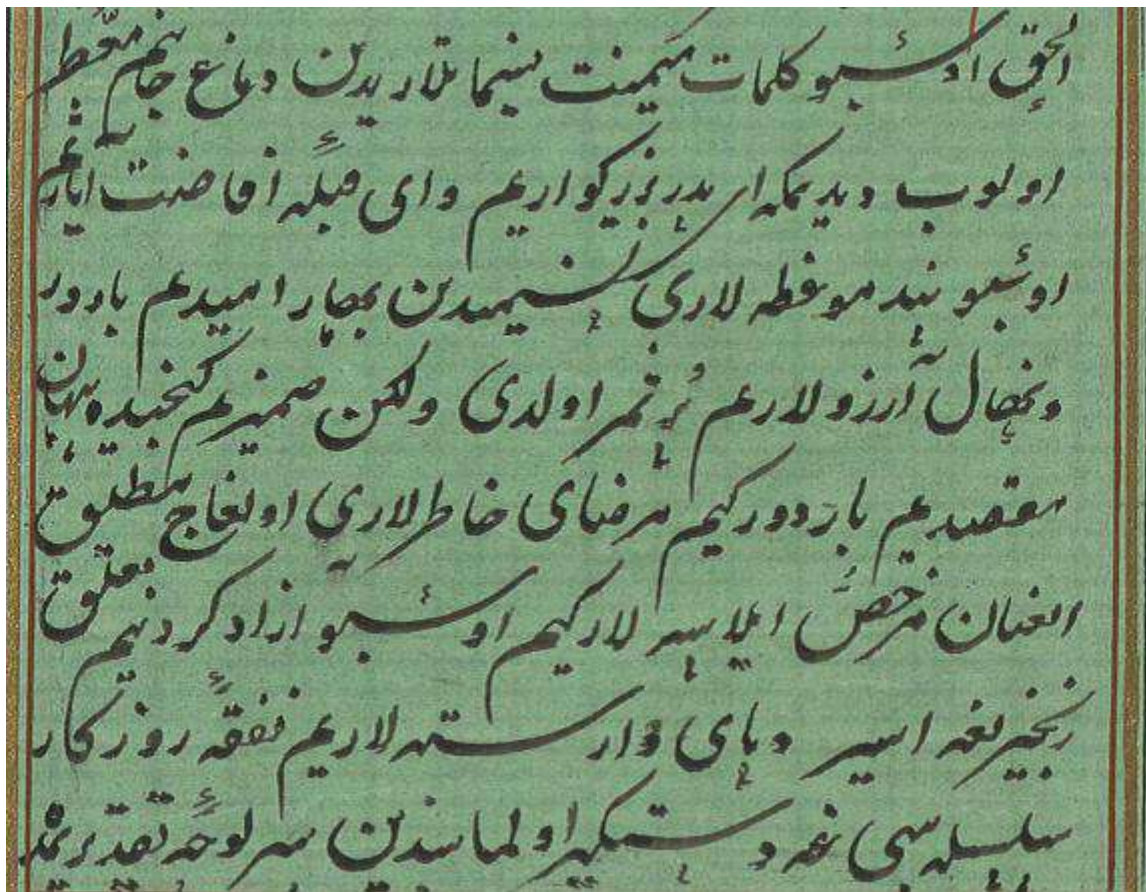 الحق اوشبو كلمات ميمنت سيماتلاريدين دماغ جانيم معطر
اولوب ديديمكه اى پدر بزركواريم واى قبلهٔ افاضت آثاريم
اوشبو پند موعظه لارى نسيميدين بهار اميديم بارور
ونهال آرزولاريم پر ثمر اولدى ولكن ضميريم كنجيده پنهان
مقصديم باردوركيم رضاى خاطرلارى اولغاج مطلق
العنان مرخص ايلاسه لاركيم اوشبو ازاد كردنيم تعلق
زنجيريغه اسير وپاى وارسته لاريم نفقهٔ روزكار
سلسله سى غه دستكير اولماسدين سر لوحهٔ تقديريمده